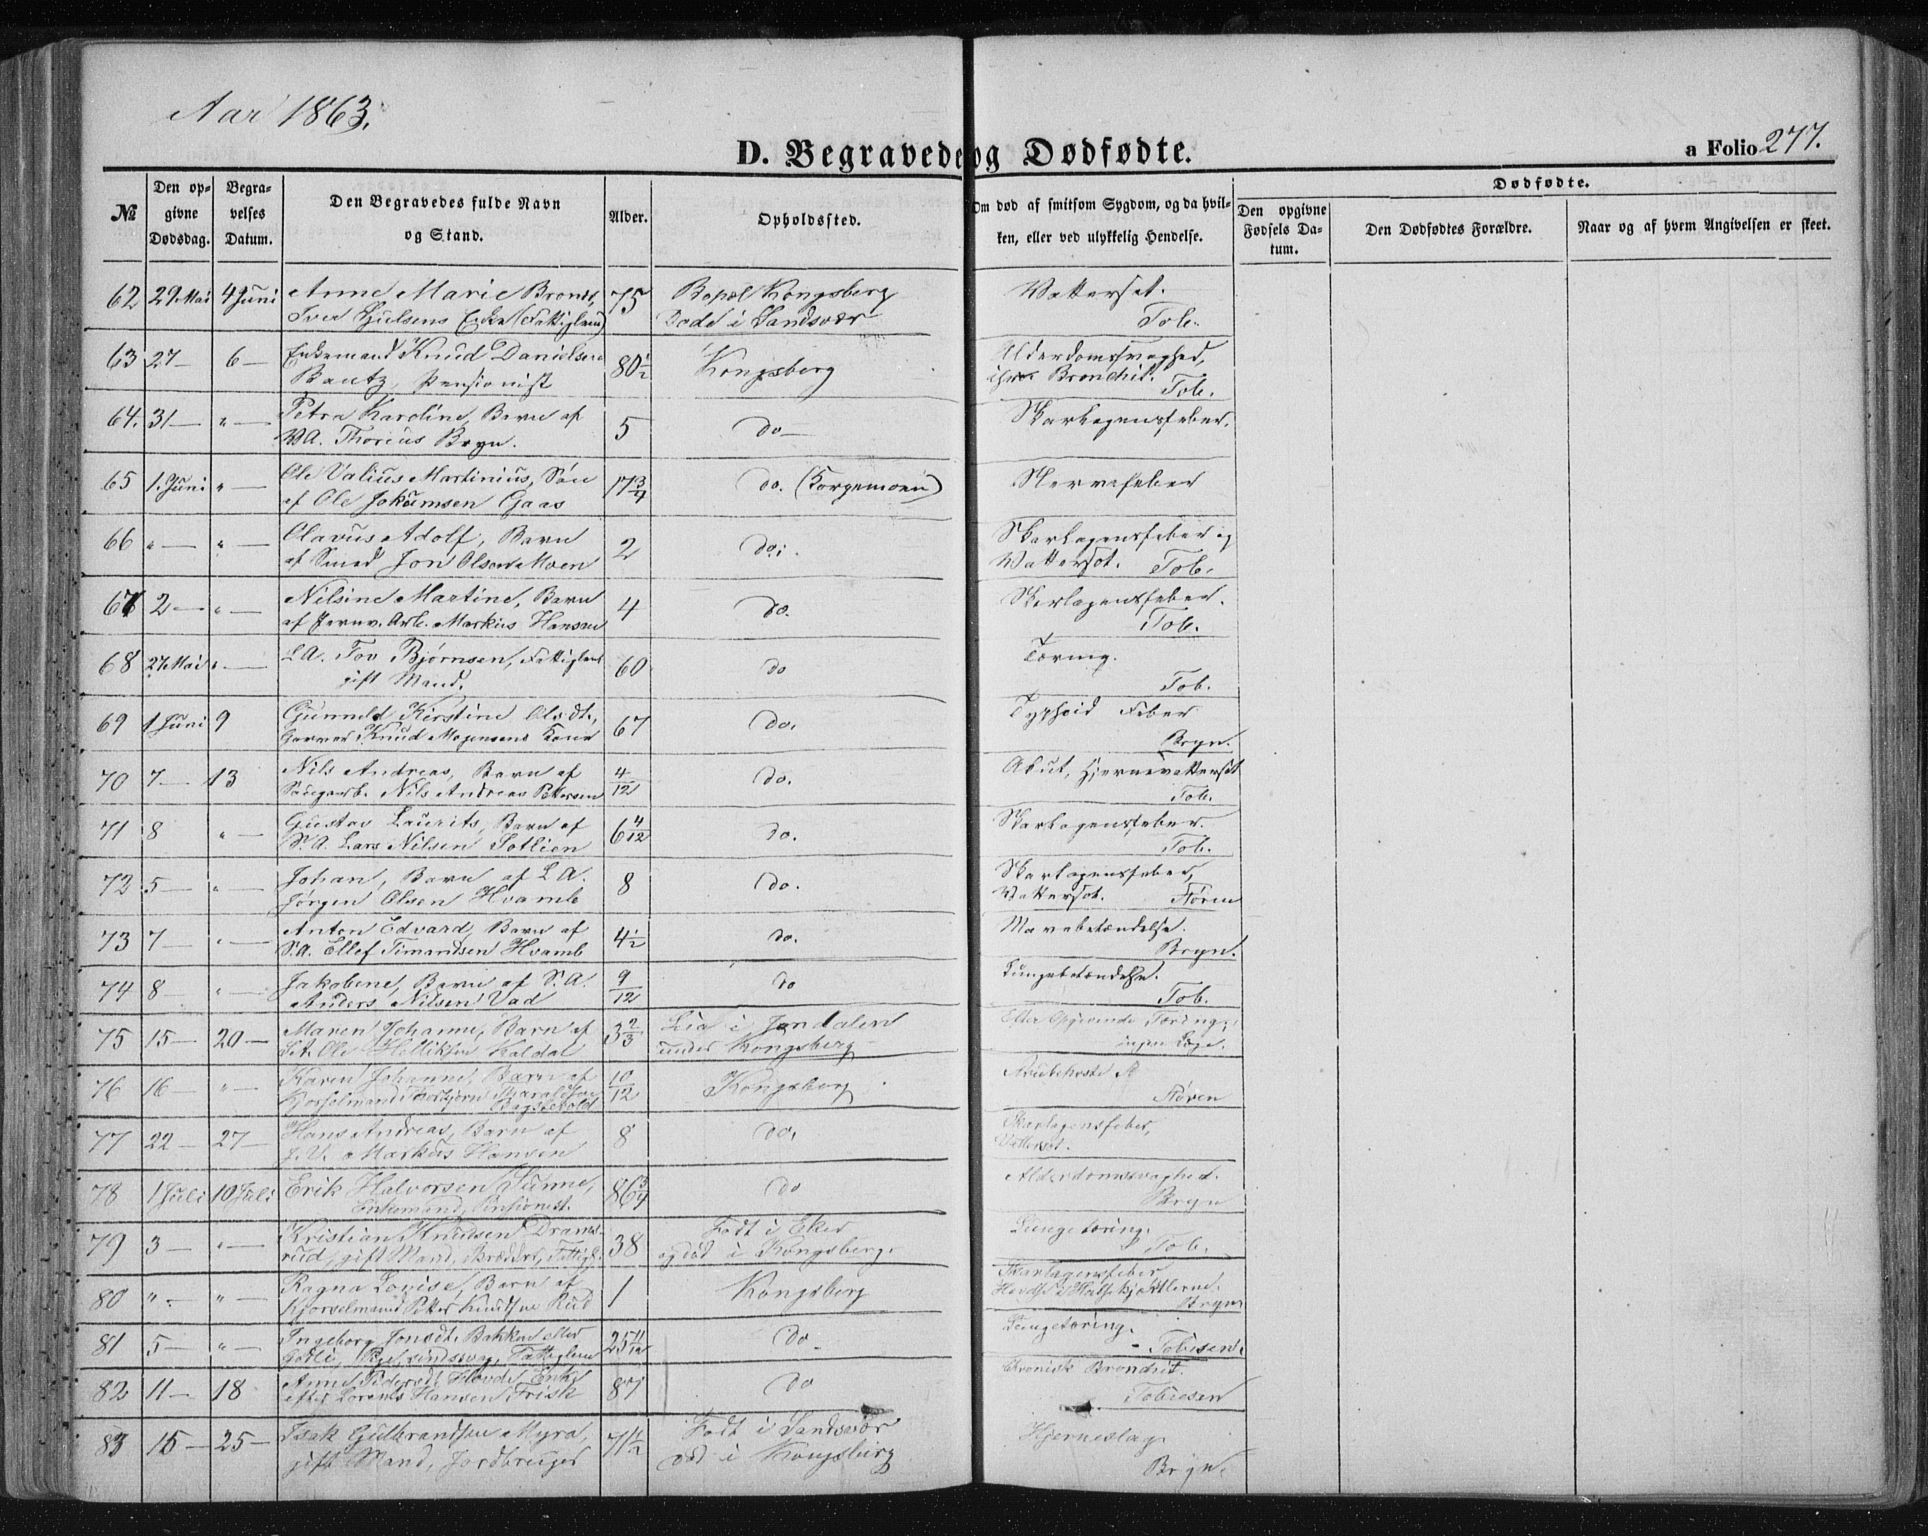 Aar 1863.
D. Begravede og Dødfødte.
a Folio 277.
No
Den opgivne Dødsdag.
Begravelses Datum.
Den Begravedes fulde Navn og Stand.
Alder.
Opholdssted.
Om død af smitsom Sygdom, og da hvilken, eller ved ulykkelig Hendelse.
Dødfødte.
Den opgivne Fødsels Datum.
Den Dødfødtes Forældre.
Naar og af hvem Angivelsen er skeet.
62 29 Mai 4 Juni Anne Marie 75 Bopæl Kongsberg Vattersot.
Enke (Fattiglem) Døde i Sandsvær Tob.
63 27 — 6 — Enkemand Knud Danielsen 80 1/2 Kongsberg Alderdomssvaghed,
Bautz, Pensionist Bronchit. Tob.
64. 31 — " — Petra Karoline, Barn af 5 do — Skarlagensfeber.
Thorius Bryn.
65 1. Juni " — Ole Valius Martinius, Søn 17 3/4 do. Nervefeber
af Ole Jokumsen Gaas
66 " — " — Olavus Adolf, Barn 2 do. Skarlagensfeber og
af Smed Jon Olsen Moen Vattersot. Tob.
67 2 — " — Nilsine Martine, Barn 4 do. Skarlagensfeber.
af Jernv. Arb. Markus Hansen Tob.
68 27 Mai " — L.A. Tov Bjørnsen, Fattiglem 60 do Tæring.
gift Mand. Tob.
69 1 Juni 9 Gunneld Kirstine Olsdt., 67 do. Typhoid Feber
Garver Knud Mogensens Kone Bryn.
70 7 — 13 Nils Andreas, Barn af 4/12 do. Akut, Hjernevattersot
Saugarb. Nils Andreas Pettersen Tob.
71 8 " — Gustav Laurits, Barn af 6 4/12 do. Skarlagensfeber.
S.A. Lars Nilsen Sotlien Tob.
72 5 — " — Johan, Barn af L.A. 8 do. Skarlagensfeber,
Jørgen Olsen Hvamb Vattersot. Støren
73 7 — " — Anton Edvard, Barn af 4 1/2 do. Mavebetændelse.
S.A. Ellef Timandsen Hvamb Bryn.
74 8 — " — Jakobine, Barn af S.A. 9/12 do Lungebetændelse.
Anders Nilsen Vad Tob.
75 15 — 20 — Maren Johanne, Barn af 3 2/3 Lia i Jondalen Efter Opgivende Tæring;
Ole Helliksen Kaldal under Kongsberg ingen Læge.
76 16 — " — Karen Johanne, Barn af 10/12 Kongsberg
Kjørselmand Thorbjørn Støren
77 22 — 27 — Hans Andreas, Barn af 8 do. Skarlagensfeber,
J.V. a Markus Hansen Vattersot.
78 1 Juli 10 Juli Erik Halvorsen Sunne, 86 3/4 do Alderdomssvaghed.
Enkemand, Pensionist. Bryn
79 3 — " — Kristian Knudsen Dramsrud, 38 Født i Eker Lungetæring.
gift Mand, Fattigl. og død i Kongsberg. Tob.
80 " — " — Ragna Lovise, Barn af 1 Kongsberg Skarlagensfeber
Kjørselmand Petter Knudsen Rud Bryn
81 5 — " — Ingeborg Jonsdt. Bakken eller 25 11/12 Do Lungetæring.
Fattiglem Tobiesen.
82 11 — 18 Anne Pedersd. Hovde, Enke 87 do Chronisk Bronchit.
efter Lorents Hansen Frisk Tobiesen
83 15 — 25 — Isak Gulbrandsen Myra, 71 1/2 Født i Sandsvær Hjerneslag
gift Mand, Jordbruger død i Kongsberg Bryn.